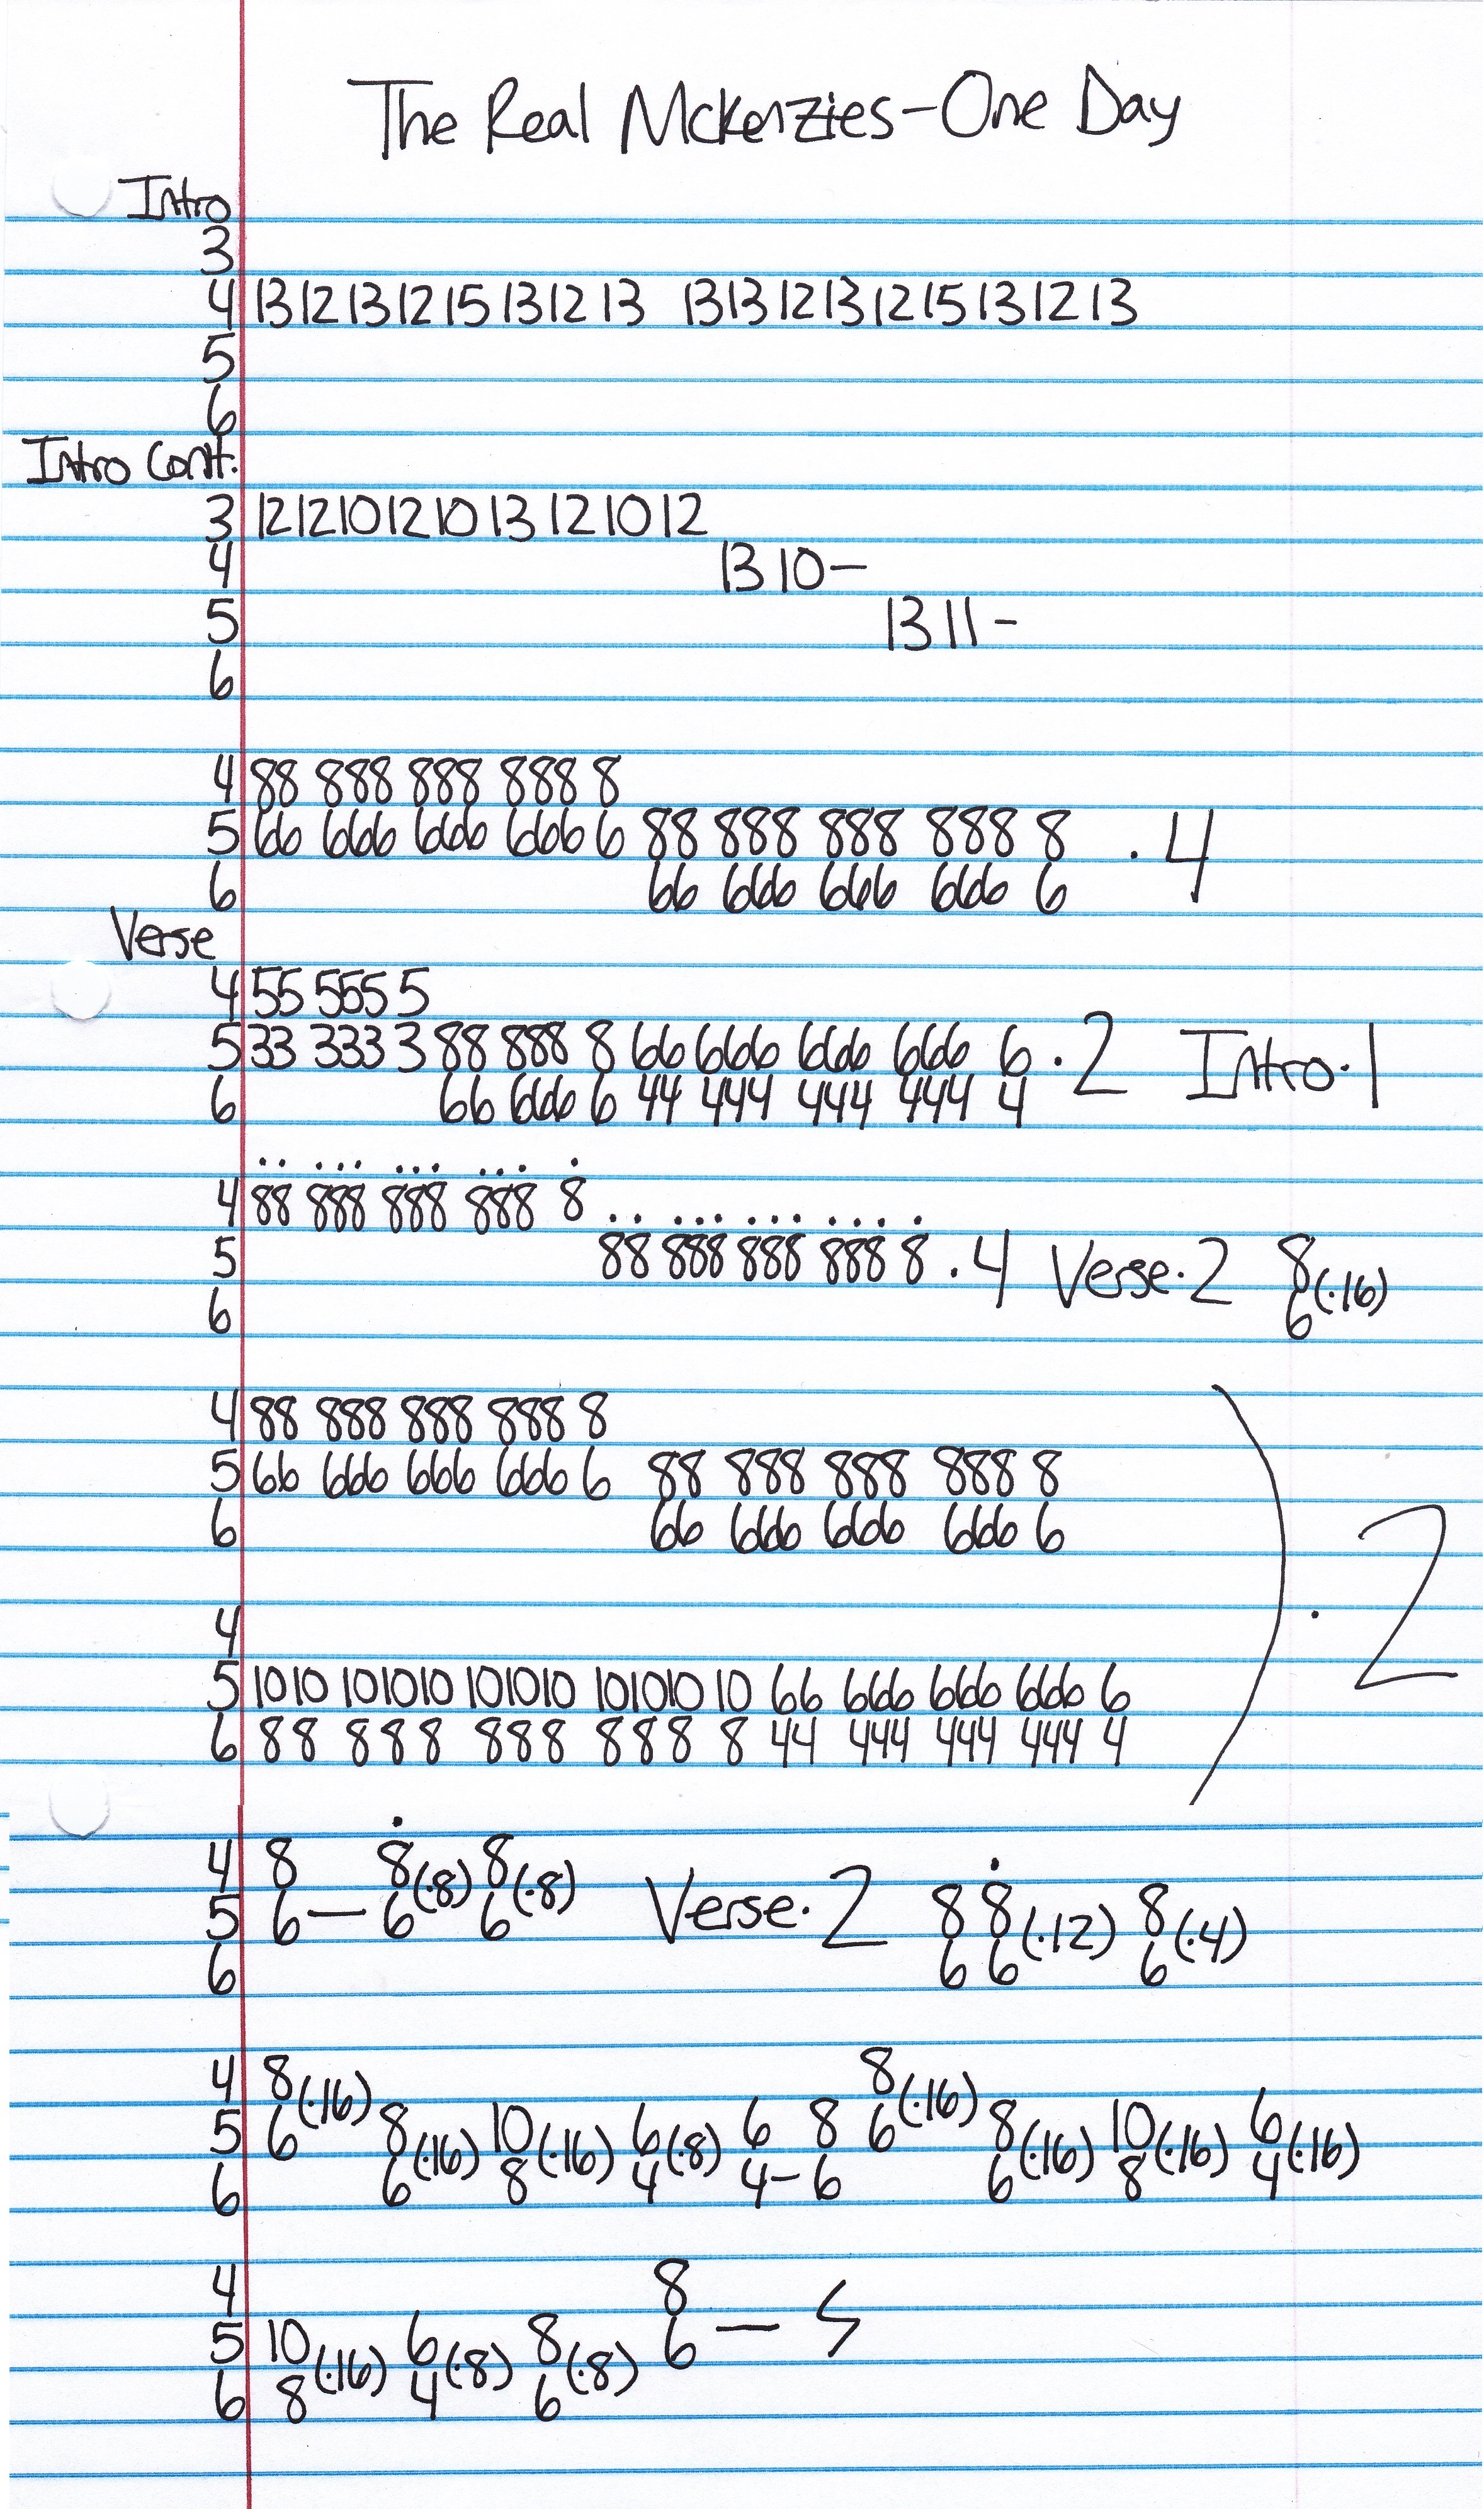 The Real McKenzies-One Day
Intro
3
4 13 12 13 12 15 13 12 13 13 13 12 13 12 15 13 12 13
5
6
Intro Cont.
3 12 12 10 12 10 13 12 10 12
4 13 10-
5 13 11-
6
4 88 888 888 888 8
5 66 666 666 666 6 88 888 888 888 8 . 4
6 66 666 666 666 6
Verse
4 55 555 5
5 33 333 3 88 888 8 66 666 666 666 6 . 2 Intro.1
6 66 666 6 44 444 444 444 4
.. ... ... ... .
4 88 888 888 888 8 .. ... ... ... .
5 88 888 888 888 8 . 4 Verse.2 8(.16)
6 6
4 88 888 888 888 8
5 66 666 666 666 6 88 888 888 888 8
6 66 666 666 666 6
) . 2
4
5 1010 101010 101010 101010 10 66 666 666 666 6
6 88 888 888 888 8 44 444 444 444 4
.
4 8 8(.8) 8(.8) .
5 6 — 6 6 Verse.2 8 8(.12) 8(.4)
6 6 6 6
4 8(.16) 8(.16)
5 6 8(.16) 10(.16) 6(.8) 6 8 6 8(.16) 10(.16) 6(.16)
6 6 8 4 4-6 6 8 4
4 8
5 10(.16) 6(.8) 8(.8) 6 —
6 8 4 6